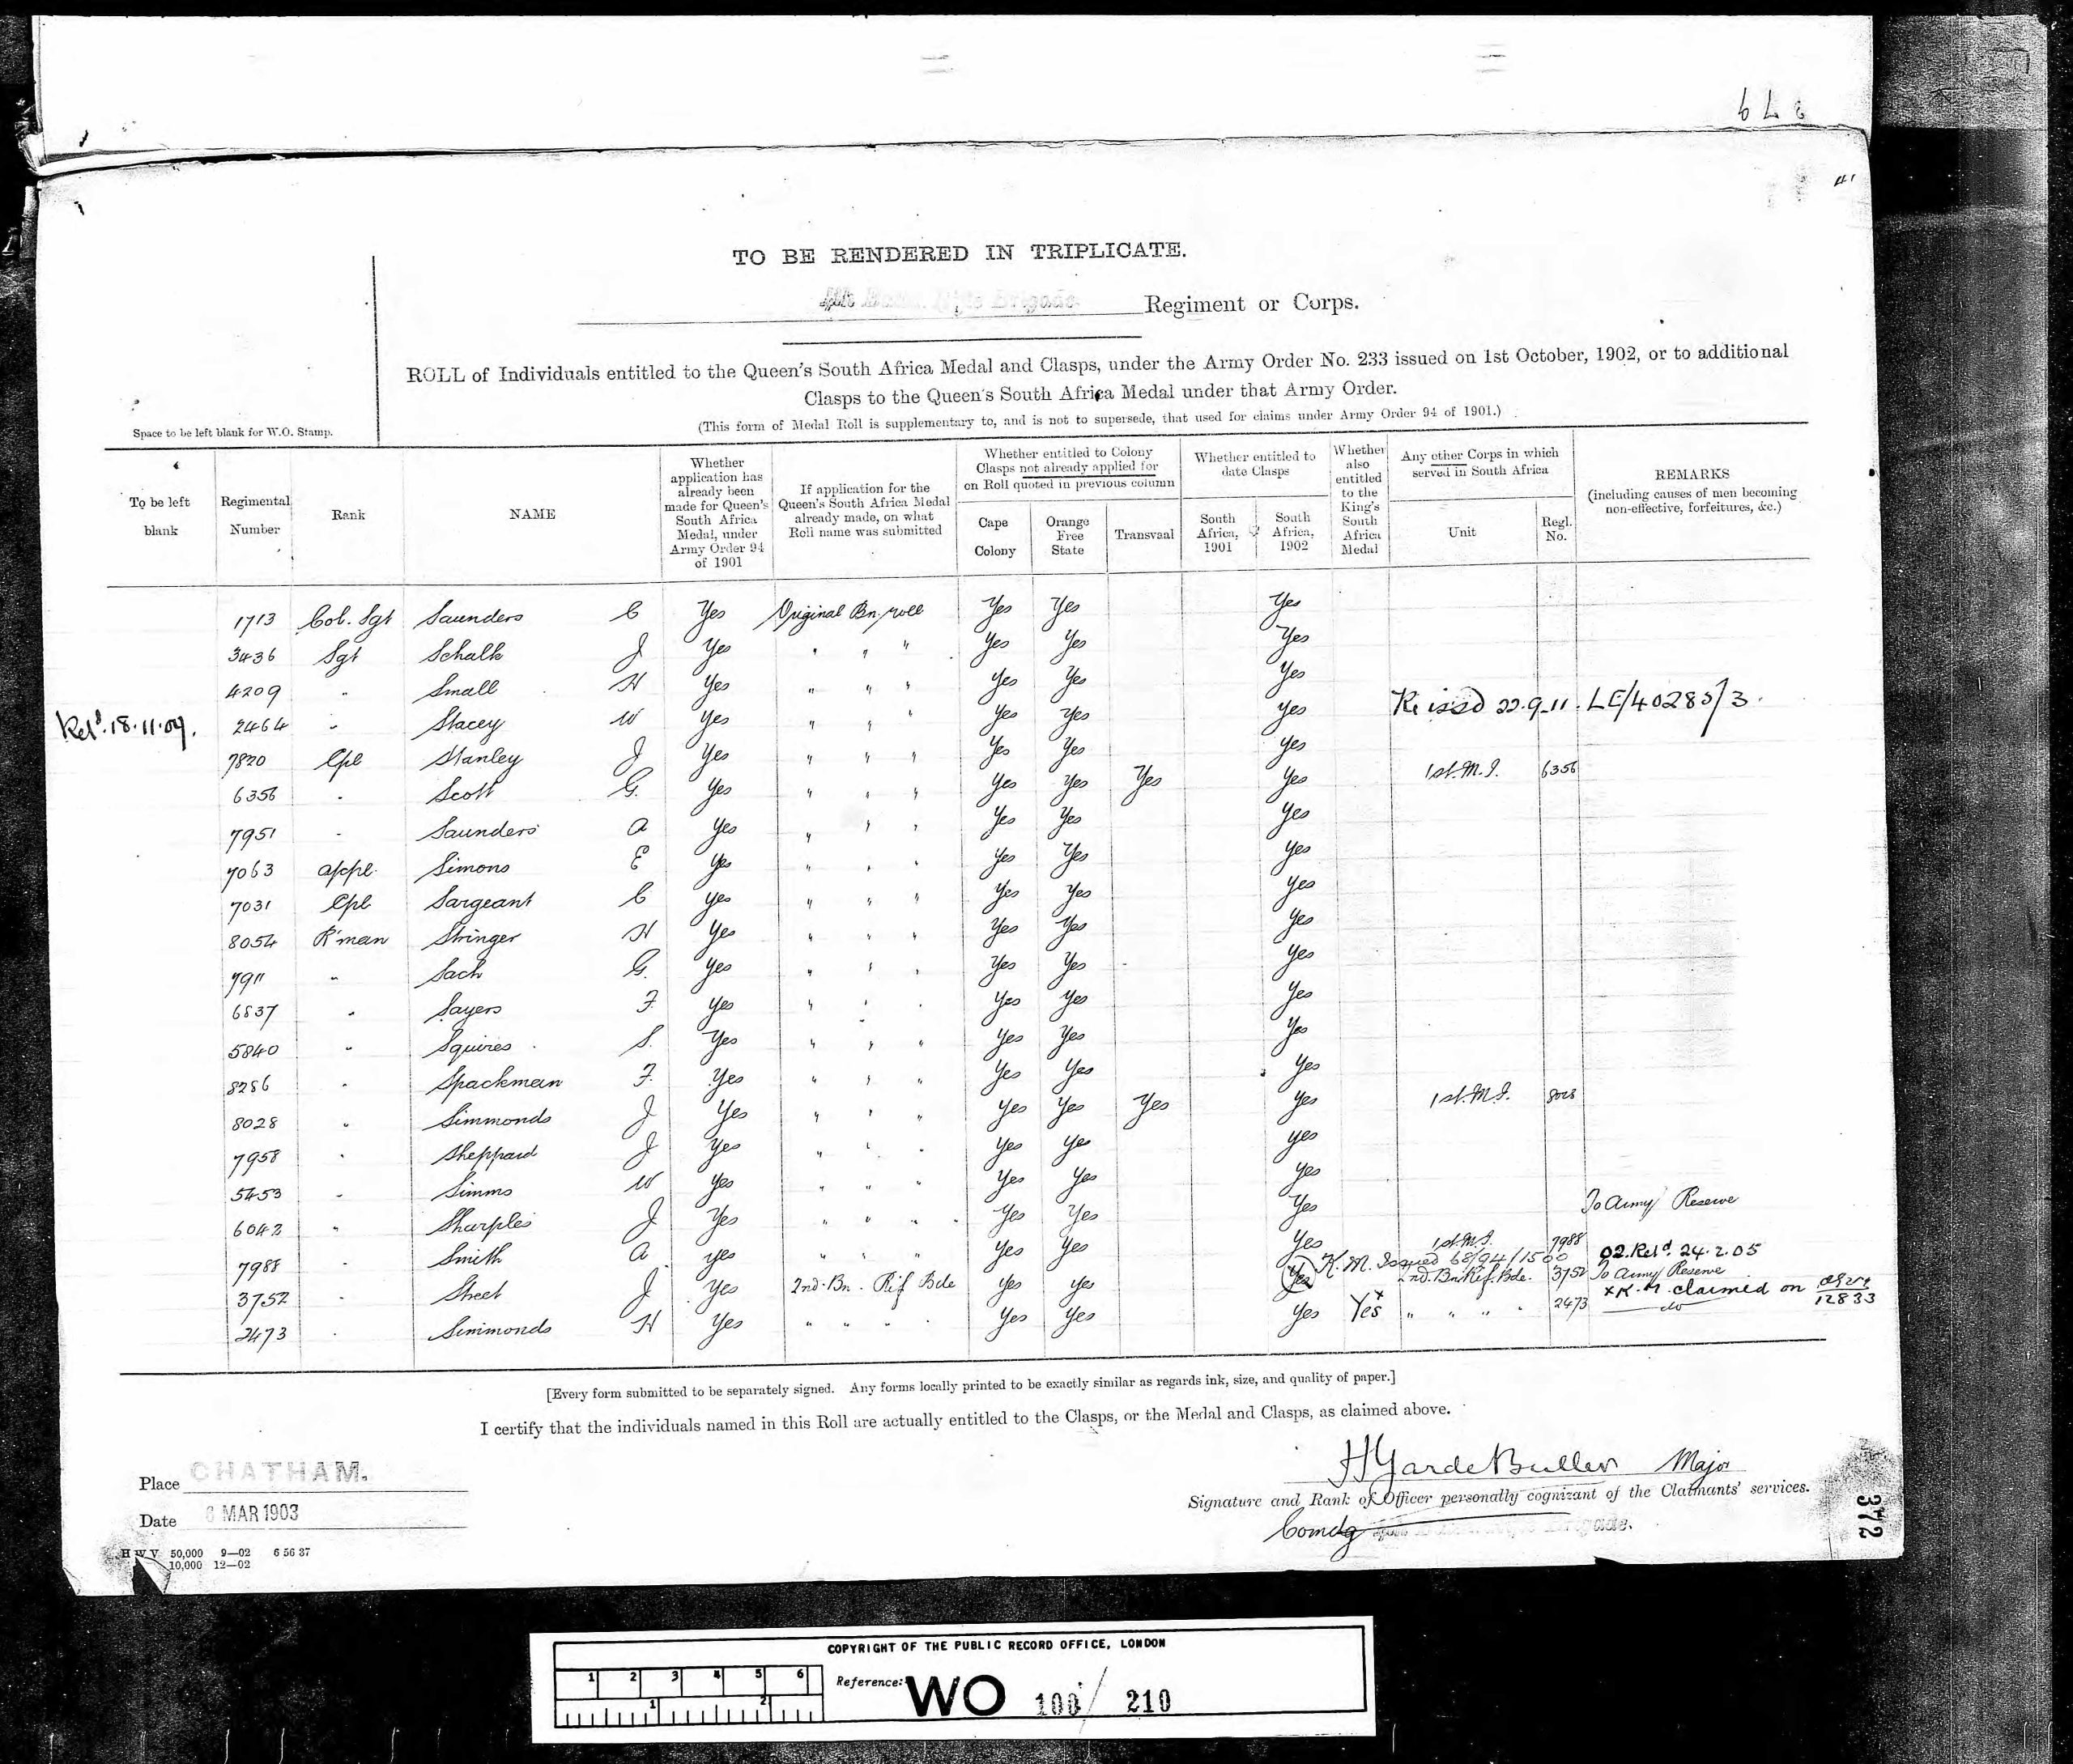 379
41
TO BE RENDERED IN TRIPLICATE.
4th Battn. Rifle Brigade Regiment or Corps.
ROLL of Individuals entitled to the Queen's South Africa Medal and Clasps, under the Army Order No. 233 issued on 1st October, 1902, or to additional
Clasps to the Queen's South Africa Medal under that Army Order.
(This form of Medal Roll is supplementary to, and is not to supersede, that used for claims under Army Order 94 of 1901.)
Space to be left blank for W.O. Stamp.
To be left blank
Regimental Number
Rank
NAME
Whether application has already been made for Queen's South Africa Medal, under Army Order 94 of 1901
If application for the Queen's South Africa Medal already made, on what Roll name was submitted
Whether entitled to Colony Clasps not already applied for on Roll quoted in previous column
Cape Colony
Orange Free State
Transvaal
Whether entitled to date Clasps
South Africa, 1901
South Africa, 1902
Whether also entitled to the King's South Africa Medal
Any other Corps in which served in South Africa
Unit
Regl. No.
REMARKS
(including causes of men becoming non-effective, forfeitures, &c.)
1713 Col. Sgt Saunders C Yes Original Bn. roll Yes Yes Yes
3436 Sgt Schalk J Yes " " " Yes Yes Yes
4209 " Small H Yes " " " Yes Yes Yes
Retd. 18.11.09. 2464 " Stacey W Yes " " " Yes Yes Yes Re issd 22.9.11. LE/40285/3.
7820 Cpl Stanley J Yes " " " Yes Yes Yes
6356 " Scott G. Yes " " " Yes Yes Yes Yes 1st. M.I. 6356
7951 " Saunders A Yes " " " Yes Yes Yes
7063 a/cpl. Simons E Yes " " " Yes Yes Yes
7031 Cpl Sargeant C Yes " " " Yes Yes Yes
8054 R'man Stringer H Yes " " " Yes Yes Yes
7911 " Sach G. Yes " " " Yes Yes Yes
6837 " Sayers F. Yes " " " Yes Yes Yes
5840 " Squires S. Yes " " " Yes Yes Yes
8286 " Spackman F. Yes " " " Yes Yes Yes
8028 " Simmonds J Yes " " " Yes Yes Yes Yes 1st. M.I. 8028
7958 " Sheppard J Yes " " " Yes Yes Yes
5453 " Simms W Yes " " " Yes Yes Yes
6042 " Sharples J Yes " " " Yes Yes Yes To Army Reserve
7988 " Smith A Yes " " " Yes Yes Yes 1st. M.I. 7988 02. Retd. 24.2.05
K.M. Issued 68/94/1500
3752 " Street J Yes 2nd. Bn. Rif Bde Yes Yes Yes 2nd. Bn Rif. Bde. 3752 To Army Reserve
x K.M. claimed on 12833
2473 " Simmonds H Yes " " " " Yes Yes Yes Yes x " " " " 2473 do
[Every form submitted to be separately signed. Any forms locally printed to be exactly similar as regards ink, size, and quality of paper.]
I certify that the individuals named in this Roll are actually entitled to the Clasps, or the Medal and Clasps, as claimed above.
H Yarde Buller Major
Signature and Rank of Officer personally cognizant of the Claimants' services.
Comdg 4th Battn. Rifle Brigade.
Place CHATHAM.
Date 6 MAR 1903
H W V 50,000 9—02 6 56 37
10,000 12—02
372
COPYRIGHT OF THE PUBLIC RECORD OFFICE, LONDON
1 2 3 4 5 6
1 2
Reference:
WO 100/210